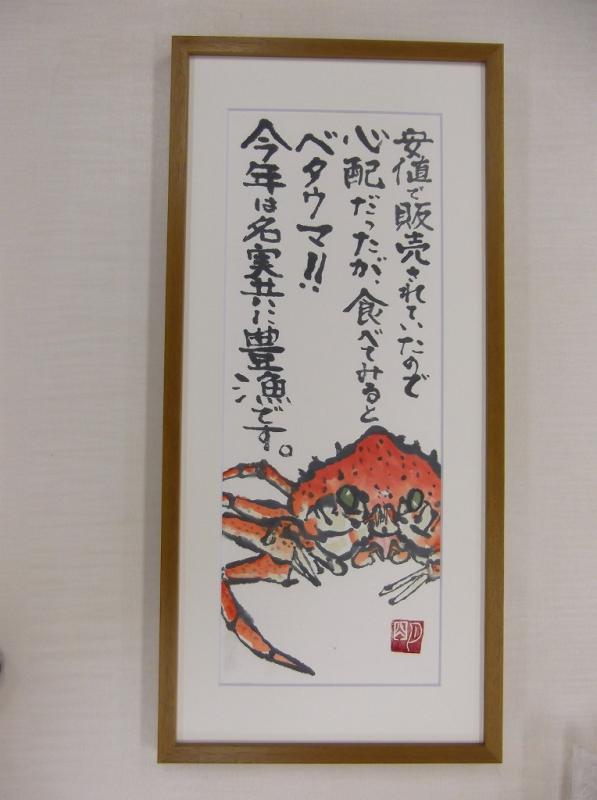 安値で販売されていたので
心配だったが、食べてみると
ベタウマ!!
今年は名実共に豊漁です。